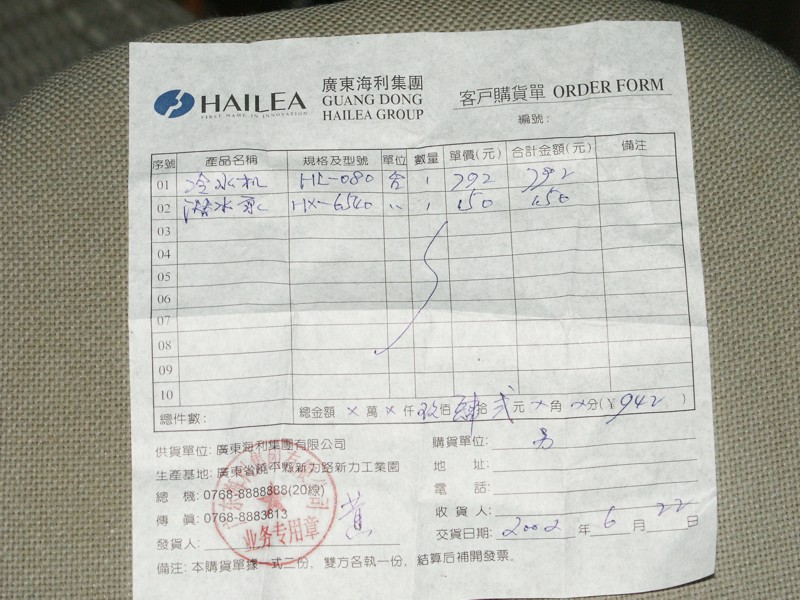 HAILEA
FIRST NAME IN INNOVATION
廣東海利集團
GUANG DONG
HAILEA GROUP
客戶購貨單 ORDER FORM
編號:
序號 產品名稱 規格及型號 單位 數量 單價(元) 合計金額(元) 備注
01 冷水机 HL-080 台 1 792 792
02 潜水泵 HX-6540 〃 1 150 150
03
04
05
06
07
08
09
10
總件數: 總金額 × 萬 × 仟 玖 佰 肆 拾 贰 元 × 角 × 分(¥942)
供貨單位: 廣東海利集團有限公司
生産基地: 廣東省饒平縣新力路新力工業園
總 機: 0768-8888888(20線)
傳 眞: 0768-8883813
發貨人: 黄
业务专用章
購貨單位:
地 址:
電 話:
收 貨 人:
交貨日期: 2002 年 6 月 22 日
備注: 本購貨單據一式二份, 雙方各執一份, 結算后補開發票.